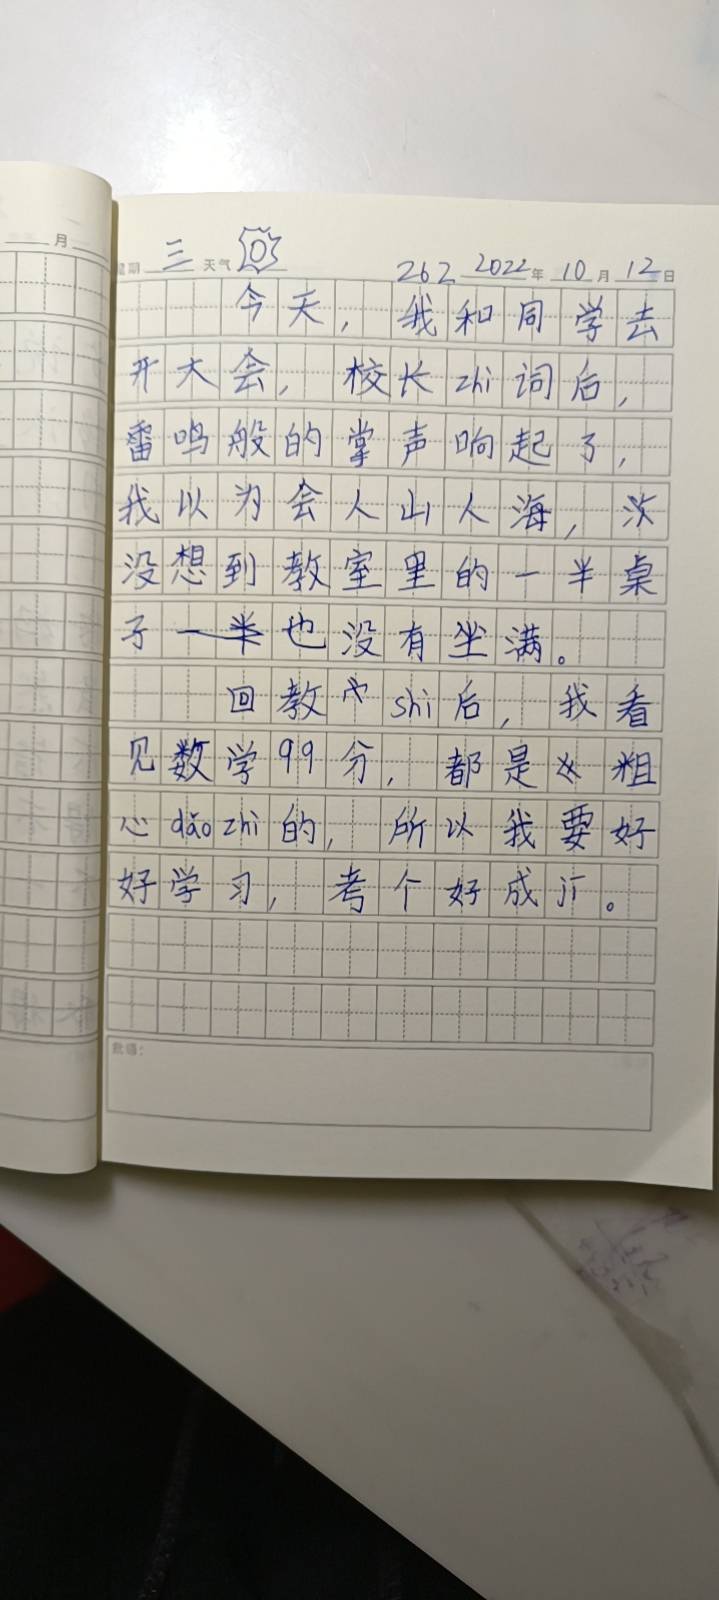 月
星期 三 天气 262 2022 年 10 月 12 日
今天，我和同学去
开大会，校长zhi词后，
雷鸣般的掌声响起了，
我以为会人山人海，
没想到教室里的一半桌
子一半也没有坐满。
回教shi后，我看
见数学99分，都是粗
心dǎozhì的，所以我要好
好学习，考个好成。
批语：